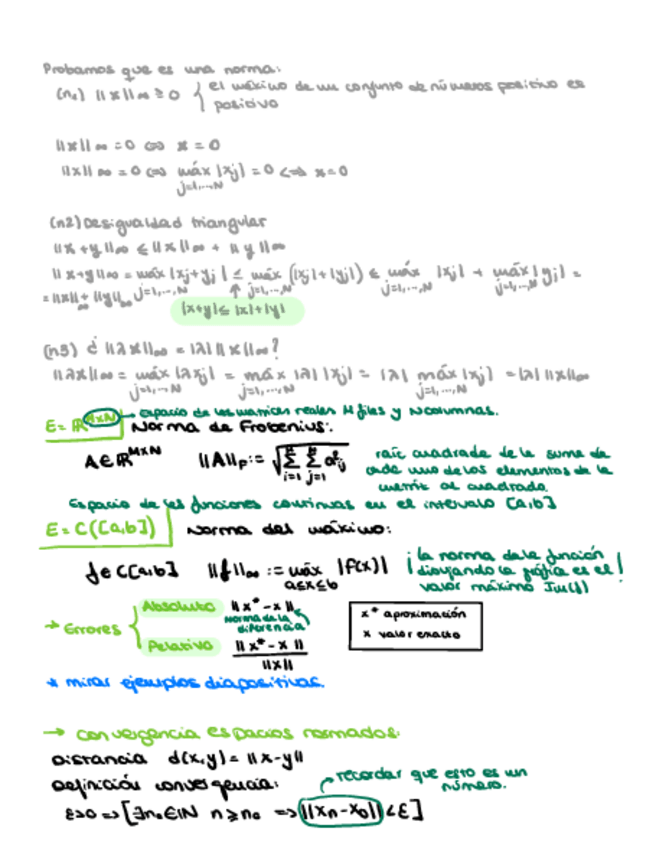 Probamos que es una norma:
(n₁) ||x||∞ ≥ 0 { el máximo de un conjunto de números positivo es
positivo
||x||∞ = 0 ⇔ x = 0
||x||∞ = 0 ⇔ máx |xj| = 0 ⇔ x=0
j=1,...,N
(n2) Desigualdad triangular
||x+y||∞ ≤ ||x||∞ + ||y||∞
||x+y||∞ = máx |xj+yj| ≤ máx (|xj|+|yj|) ≤ máx |xj| + máx |yj| =
j=1,...,N j=1,...,N j=1,...,N j=1,...,N
= ||x||∞ + ||y||∞
|x+y| ≤ |x|+|y|
(n3) ¿ ||λx||∞ = |λ| ||x||∞ ?
||λx||∞ = máx |λxj| = máx |λ| |xj| = |λ| máx |xj| = |λ| ||x||∞
j=1,...,N j=1,...,N j=1,...,N
E = ℝᴹˣᴺ → espacio de las matrices reales M filas y N columnas.
Norma de Frobenius:
A ∈ ℝᴹˣᴺ ||A||F := √(Σ Σ a²ij) i=1 j=1
raíz cuadrada de la suma de
cada uno de los elementos de la
matriz al cuadrado
Espacio de las funciones continuas en el intervalo [a,b]
E = C([a,b]) Norma del máximo:
f ∈ C[a,b] ||f||∞ := máx |f(x)|
a≤x≤b
¡ la norma de la función
dibujando la gráfica es el
valor máximo Im(f) !
→ Errores { Absoluto ||x* - x||
Norma de la
diferencia
Relativo ||x* - x||
||x||
x* aproximación
x valor exacto
* mirar ejemplos diapositivas.
→ convergencia espacios normados:
Distancia d(x,y) = ||x-y||
Definición convergencia:
→ recordar que esto es un
número.
ε>0 => [∃n₀∈ℕ n ≥ n₀ => ||xn - x0|| < ε]